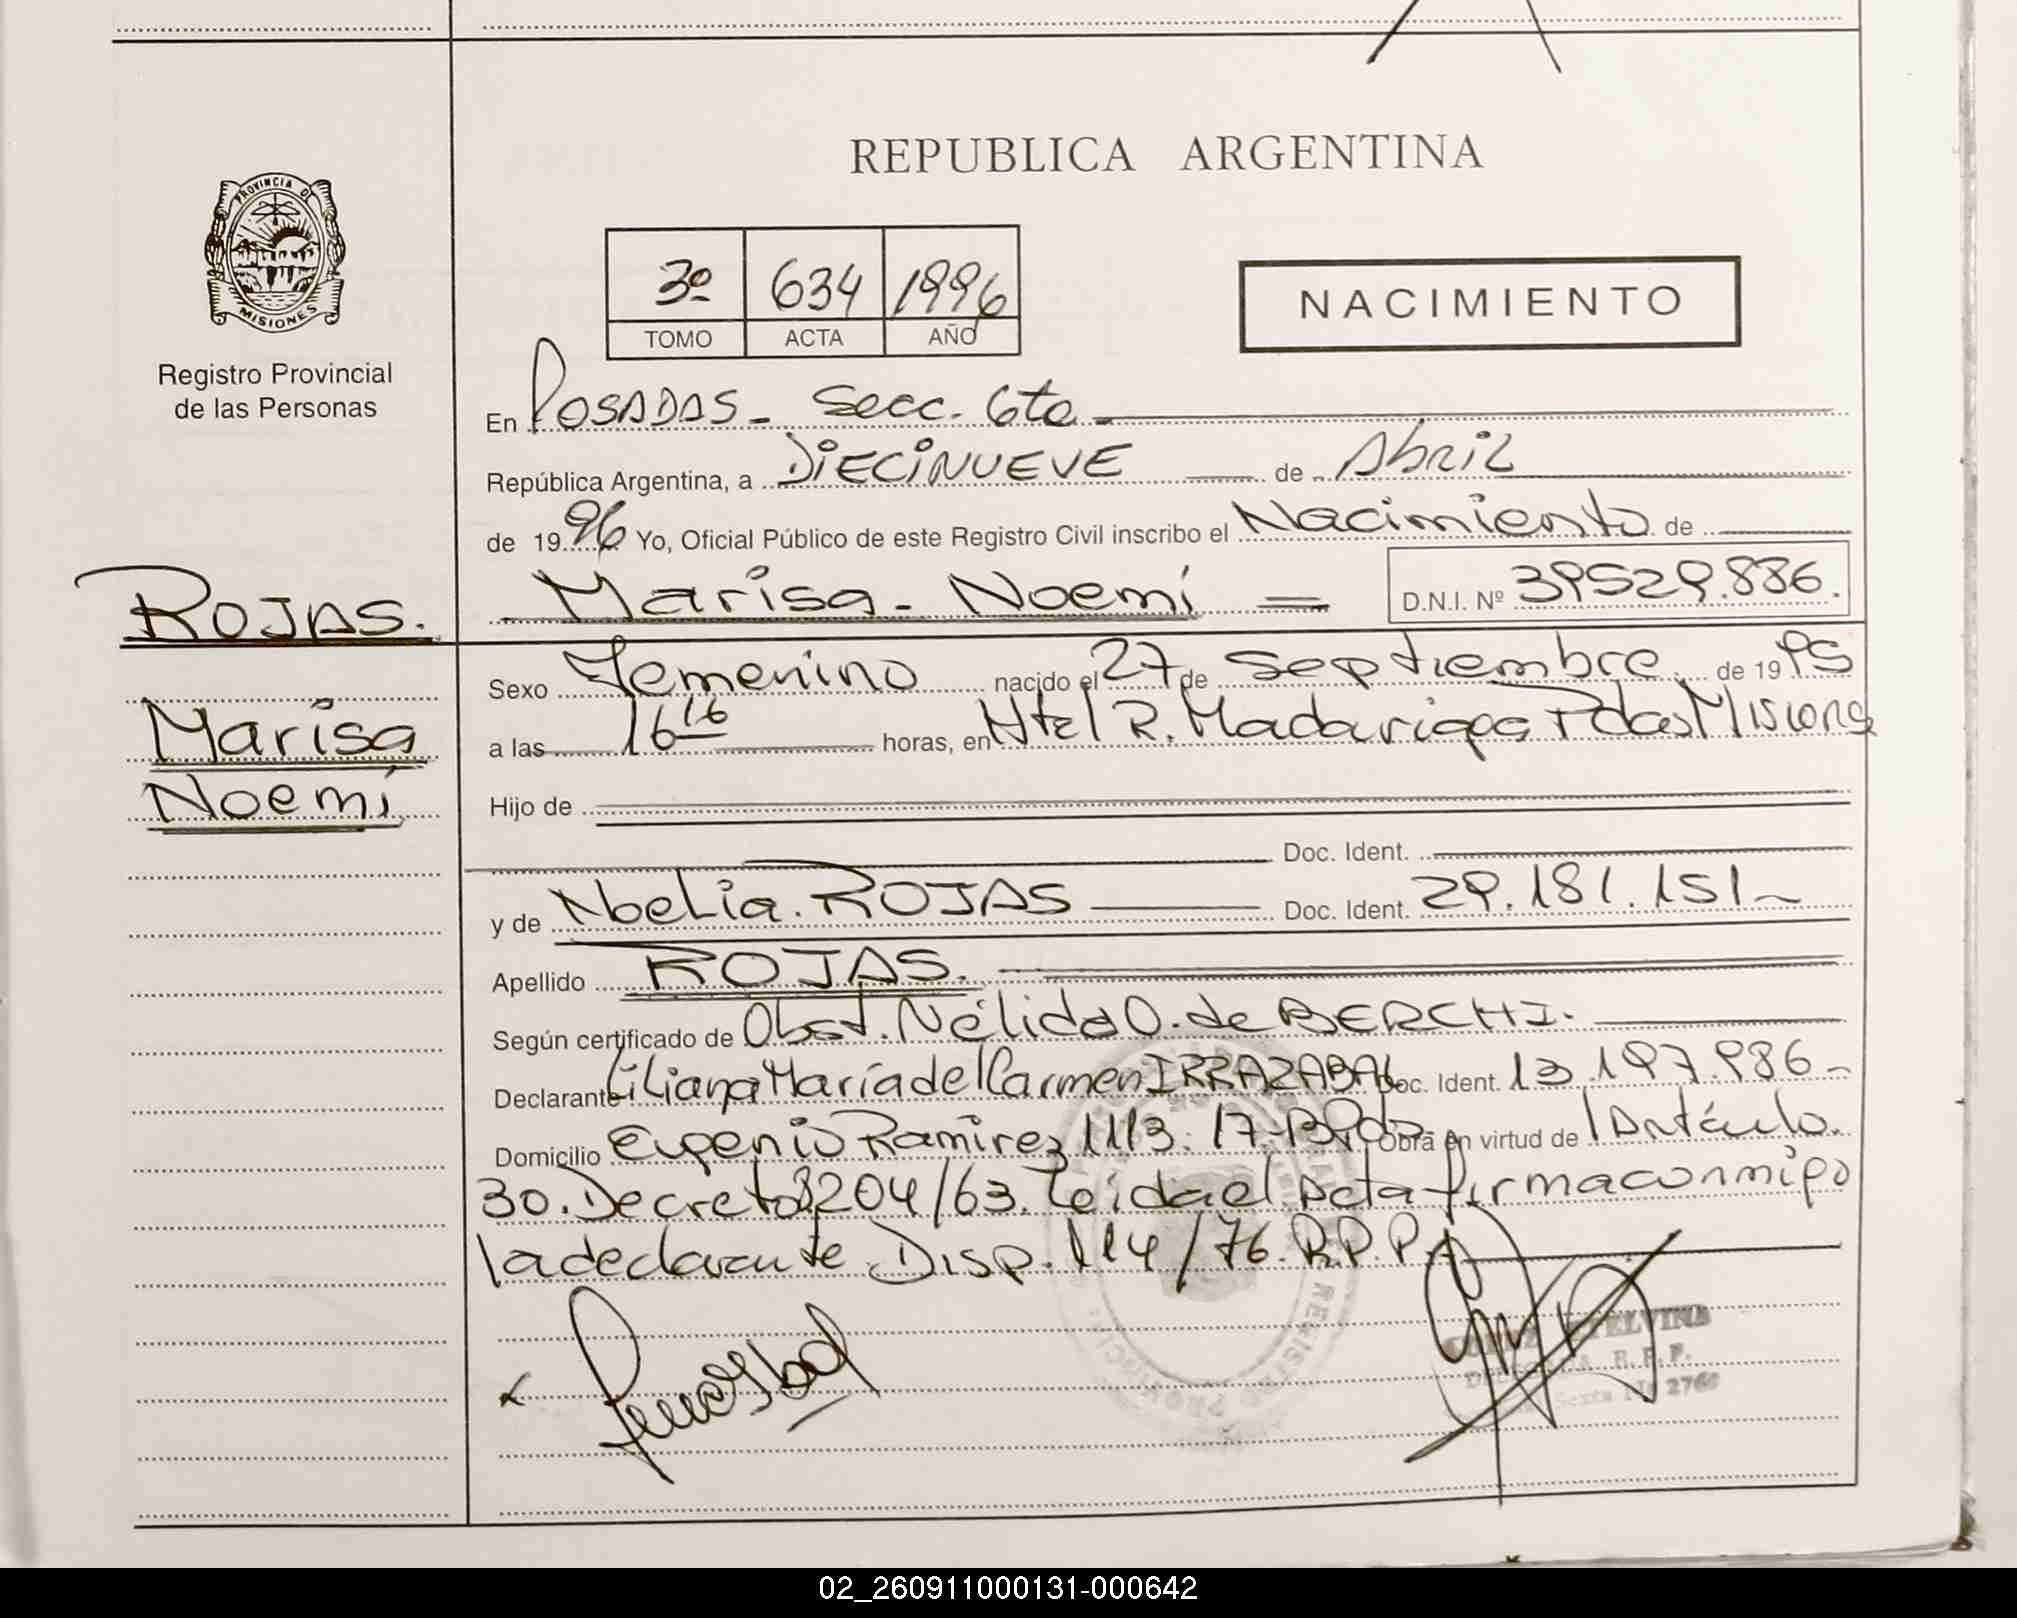 REPUBLICA ARGENTINA
PROVINCIA DE
MISIONES
Registro Provincial
de las Personas
3º 634 1996
TOMO ACTA AÑO
NACIMIENTO
En Posadas - Secc. 6ta -
República Argentina, a Diecinueve de Abril
de 1996 Yo, Oficial Público de este Registro Civil inscribo el Nacimiento de
Marisa - Noemí = D.N.I. Nº 39529.886.
ROJAS.
Marisa
Noemí
Sexo Femenino nacido el 27 de Septiembre de 1995
a las 16 16 horas, en Htel R. Madariaga Pdas Misiones
Hijo de
Doc. Ident.
y de Noelia. ROJAS Doc. Ident. 29.181.151-
Apellido ROJAS.
Según certificado de Obst. Nélida O. de BERCHI.
Declarante Liliana María del Carmen IRRAZABAL Doc. Ident. 13.197.986-
Domicilio Eugenio Ramirez 1113. Obra en virtud de l Artículo.
30. Decreto 8204/63. Leída el Acta firma conmigo
la declarante. Disp. 114/76. R.P.P.
02_260911000131-000642